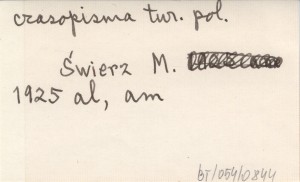 czasopisma tur. pol.
Świerz M.
1925 al, am
bT/054/0844